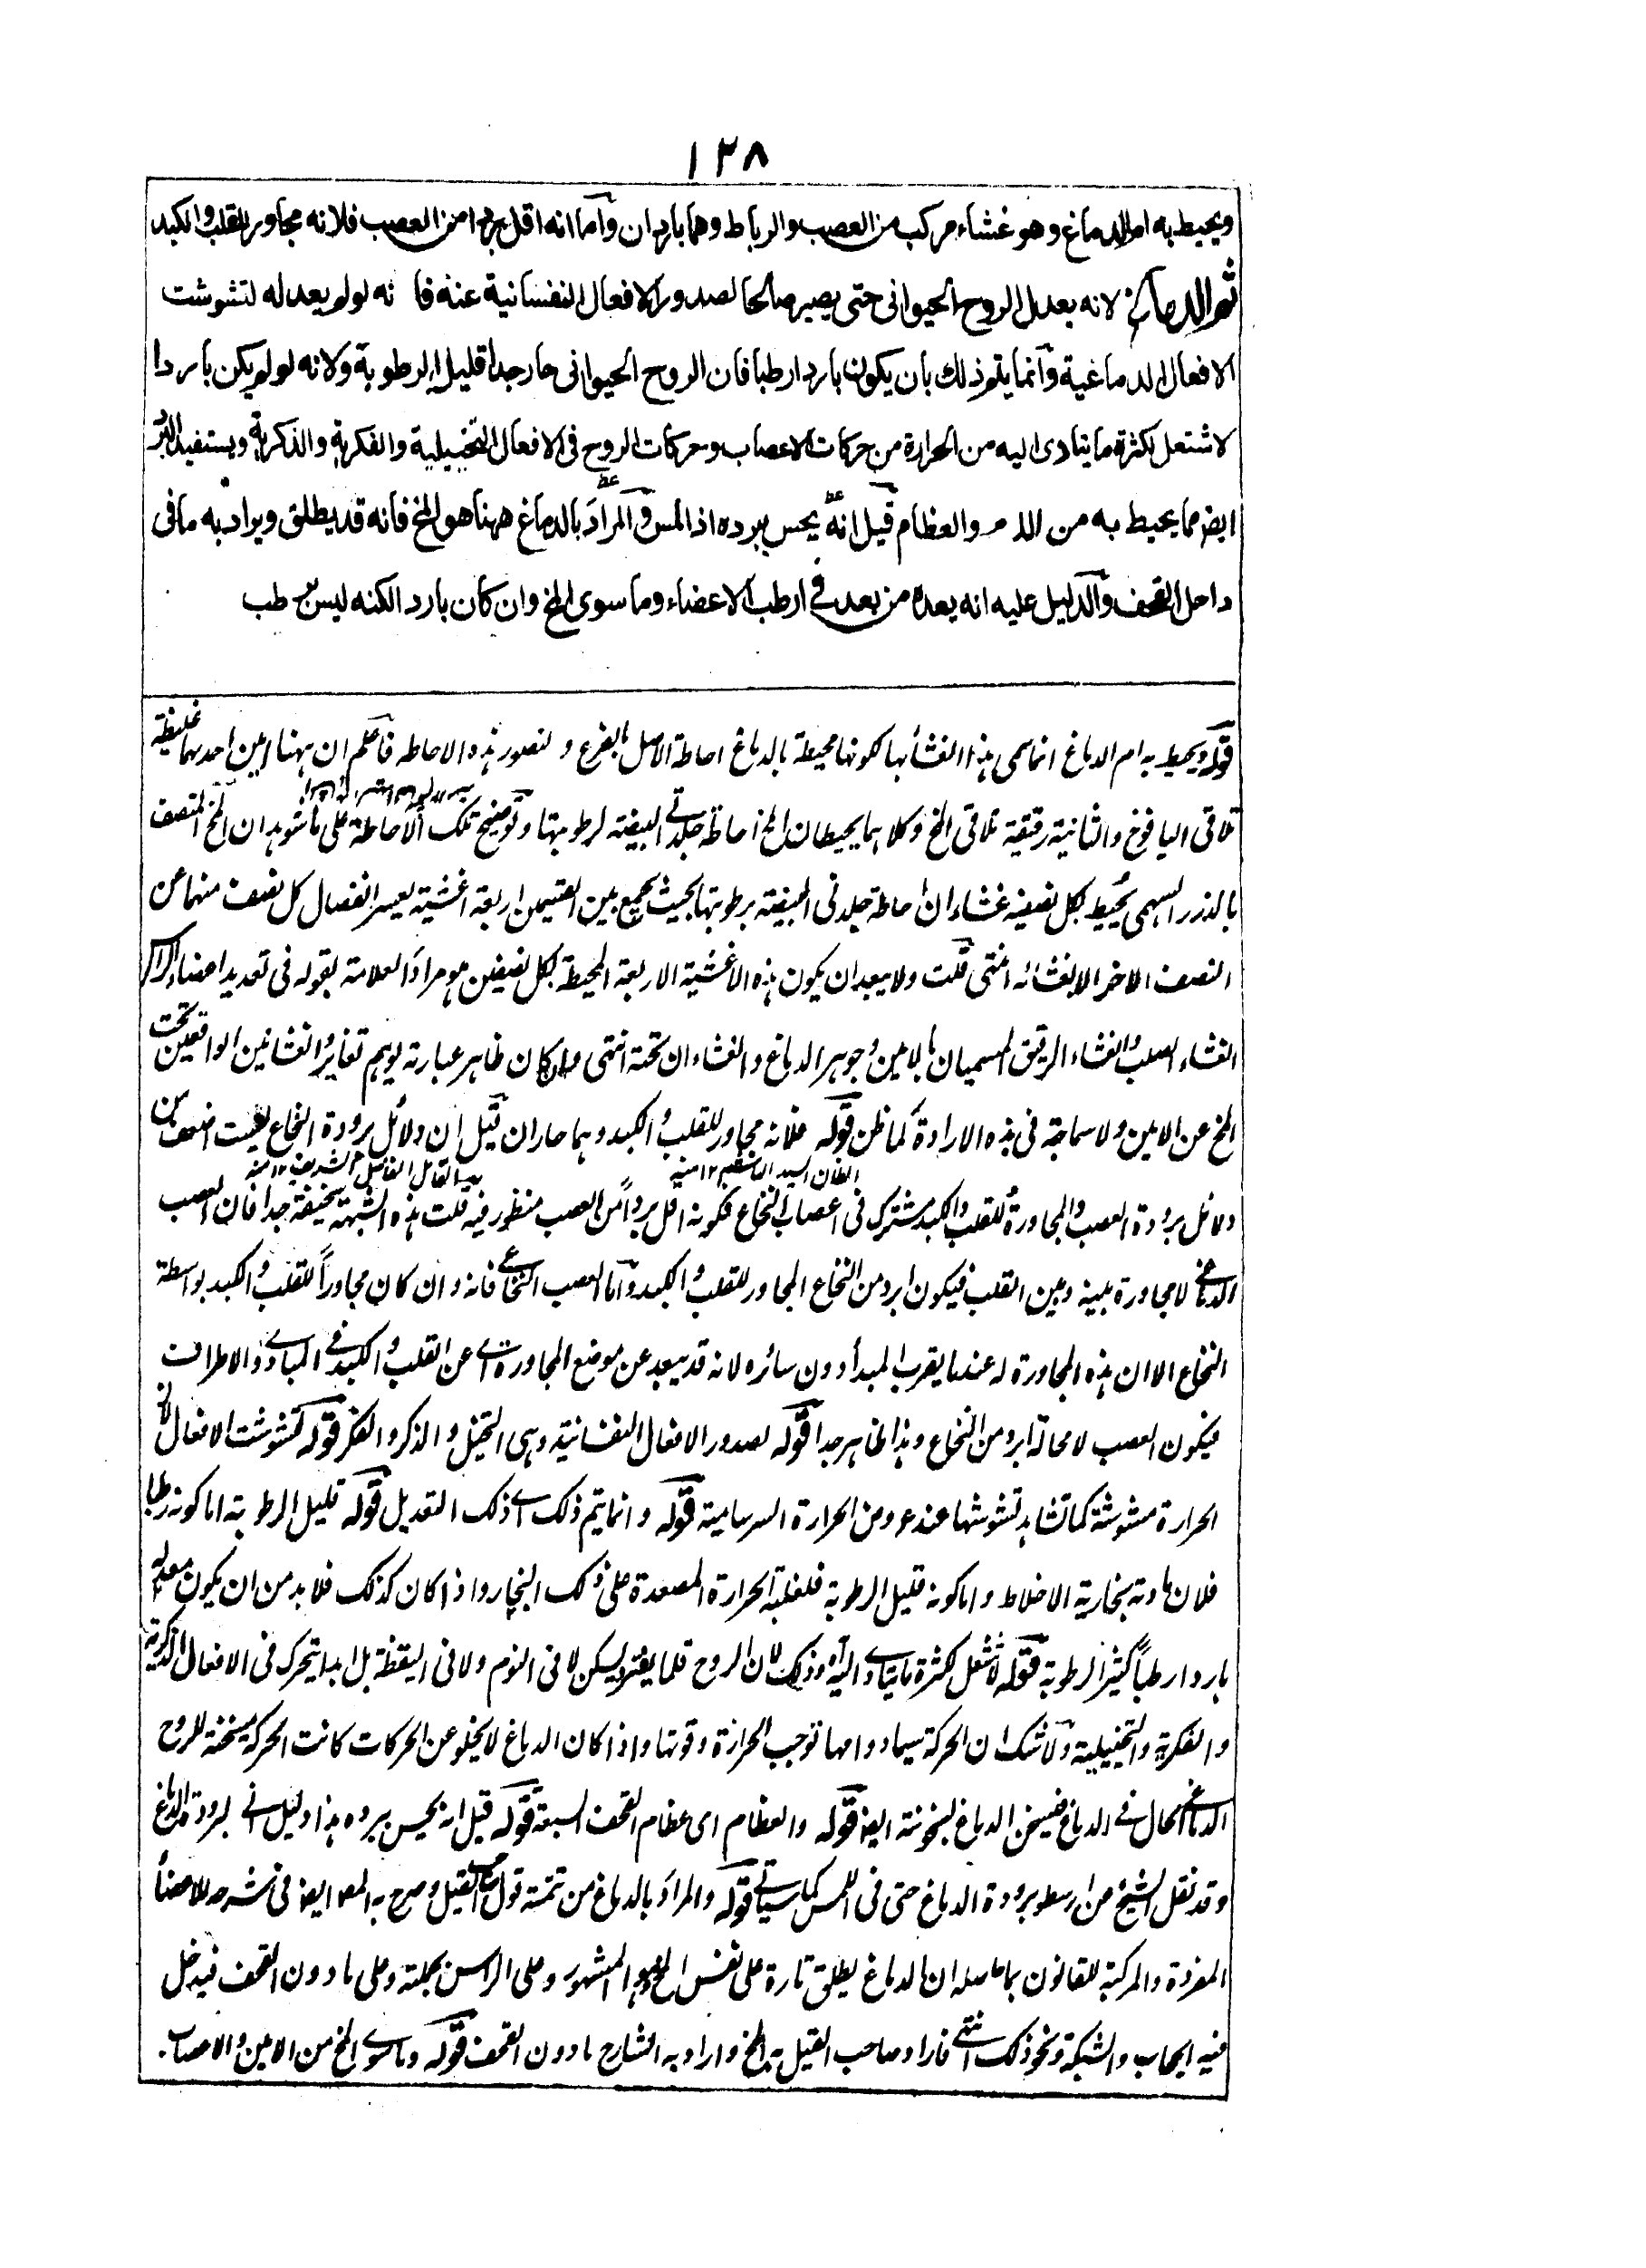 ١٢٨
ويحيط به ام الدماغ وهو غشاء مركب من العصب والرباط وهما باردان وآما انه اقل بردا من العصب فلانه مجاور للقلب والكبد
ثم الدماغ لانه يعدل الروح الحيوانى حتى يصير صالحا لصدور الافعال النفسانية عنه فا نه لو لم يعدله لتشوشت
الافعال الدماغية وآنما يتم ذلك بان يكون باردا رطبا فان الروح الحيوانى حار جدا قليل الرطوبة ولانه لو لم يكن باردا
لاشتعل لكثرة ما يتادى اليه من الحرارة من حركات الاعصاب وحركات الروح فى الافعال التخييلية والفكرية والذكرية ويستفيد البرد
ايضا مما يحيط به من الدم والعظام قيل انه يحس ببرده اذا لمس والمراد بالدماغ ههنا هو المخ فانه قد يطلق ويراد به ما فى
داخل القحف والدليل عليه انه يعده من بعد فى ارطب الاعضاء وما سوى المخ وان كان باردا لكنه ليس برطب
قوله ويحيط به ام الدماغ انما سمى هذا الغشاء بها لكونها محيطة بالدماغ احاطة الاصل بالفرع ولتصور هذه الاحاطه فاعلم ان ههنا امين احدهما غليظة
تلاقى اليافوخ والثانية رقيقة تلاقى المخ وكلاهما يحيطان المخ احاطة جلدتى البيضة لرطوبتها وتوضيح تلك الاحاطة على ما شوهد ان المخ المتصف
بالدرز السهمى يحيط بكل نصفيه غشاءان احاطة جلدتى البيضة برطوبتها بحيث يجتمع بين القسمين اربعة اغشية يعسر انفصال كل نصف منهما عن
النصف الاخر الا بغشائه انتهى قلت ولا يبعد ان يكون هذه الاغشية الاربعة المحيطة بكل نصفين هو مراد العلامة بقوله فى تعديد اعضاء الراس
الغشاء الصلب والغشاء الرقيق المسميان بالامين وجوهر الدماغ والغشاء ان تحته انتهى وان كان ظاهر عبارته يوهم تغاير الغشائين الواقعين تحت
المخ عن الامين ولا سماجة فى هذه الارادة كما ظن قوله فلانه مجاور للقلب والكبد وهما حاران قيل ان دلائل برودة النخاع ليست اضعف من
دلائل برودة العصب والمجاورة للقلب والكبد مشترك فى اعصاب النخاع فكونه اقل بردا من العصب منظور فيه قلت هذه الشبهة سخيفة جدا فان العصب
الدماغى لا مجاورة بينه وبين القلب فيكون ابرد من النخاع المجاور للقلب والكبد وآما العصب النخاعى فانه وان كان مجاورا للقلب والكبد بواسطة
النخاع الا ان هذه المجاورة له عندما يقرب المبدأ دون سائره لانه قد يبعد عن موضع المجاورة اى عن القلب والكبد فى المبادى والاطراف
فيكون العصب لا محالة ابرد من النخاع وهذا ظاهر جدا قوله لصدور الافعال النفسانية وهى التخيل والذكر والفكر قوله لتشوشت الافعال لان
الحرارة مشوشة كما تشاهد تشوشها عند عروض الحرارة السرسامية قوله وانما يتم ذلك اى ذلك التعديل قوله قليل الرطوبة اما كونه رطبا
فلان مادته بخارية الاخلاط واما كونه قليل الرطوبة فلغلبة الحرارة المصعدة على ذلك البخار واذا كان كذلك فلا بد من ان يكون معدله
باردا رطبا كثير الرطوبة قوله لاشتعل لكثرة ما يتادى اليه وذلك لان الروح قلما يفتر ويسكن لا فى النوم ولا فى اليقظة بل ابدا يتحرك فى الافعال الذكرية
والفكرية والتخييلية ولا شك ان الحركة سيما دوامها توجب الحرارة وقوتها واذا كان الدماغ لا يخلو عن الحركات كانت الحركة مسخنة للروح
الدماغى الحال فى الدماغ فيسخن الدماغ لسخونته ايضا قوله والعظام اى عظام القحف السبعة قوله قيل انه يحس ببرده هذا دليل انى لبرودة الدماغ
وقد نقل الشيخ من ارسطو برودة الدماغ حتى فى اللمس كما سياتى قوله والمراد بالدماغ من تتمة قول صاحب القيل وصرح به المص ايضا فى شرحه للاعضاء
المفردة والمركبة للقانون بما حاصله ان الدماغ يطلق تارة على نفس المخ وهو المشهور وعلى الراس بجملته وعلى ما دون القحف فيدخل
فيه الحجاب والشبكة ونحو ذلك انتهى فاراد صاحب القيل به المخ واراد به الشارح ما دون القحف قوله وما سوى المخ من الامين والاعصاب.